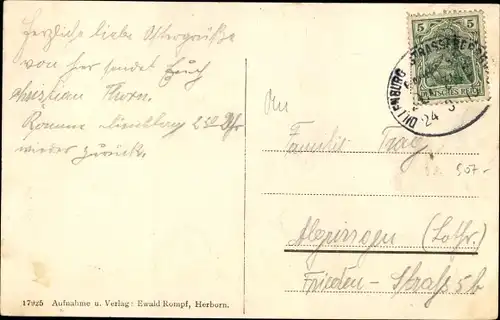 Herzliche liebe Ostergrüße
von hier sendet Euch
Christian Thorn.
Komme 2 30 Uhr
wieder zurück.
17925 Aufnahme u. Verlag: Ewald Rompf, Herborn.
5 5
DEUTSCHES REICH
DILLENBURG STRASSEBERSB
24 3
An
Familie
507-
Algringen (Lothr.)
Frieden-Straße 5b